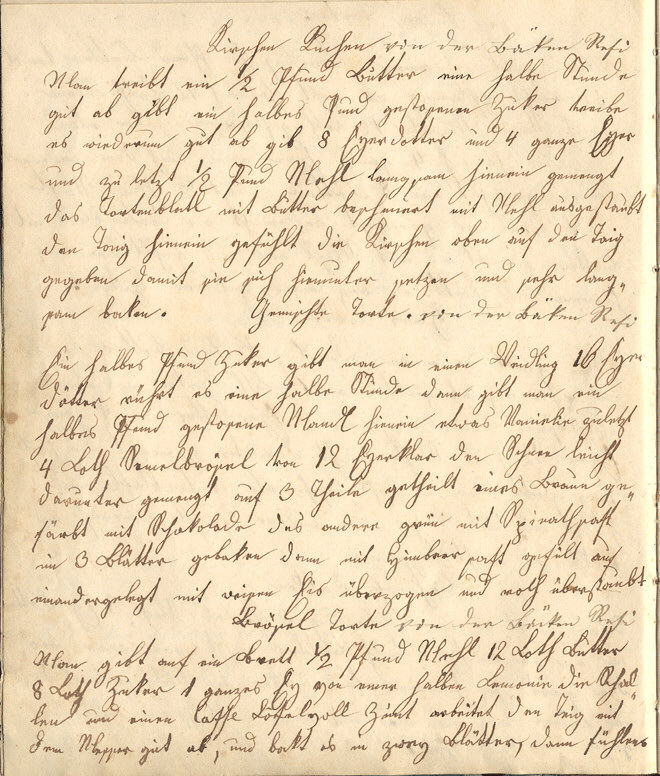 Kirschen Kuchen von der Bäken Resi
Man treibt ein 1/2 Pfund Butter eine halbe Stunde
gut ab gibt ein halbes Pund gestosenen Zuker treibe
es wiederum gut ab gib 8 Eyerdotter und 4 ganze Eyer
und zu letzt 1/2 Pund Mehl langsam hienein gemengt
das Tortenblatl mit Butter beschmiert mit Mehl ausgestaubt
den Taig hienein gefühlt die Kirschen oben auf den Taig
gegeben damit sie sich hinunter setzen und sehr lang„
sam baken. Gemischte Torte. von der Bäken Resi
Ein halbes Pfund Zuker gibt man in einen Weidling 16 Eyer
dötter rührt es eine halbe Stunde dann gibt man ein
halbes Pfund gestosene Mandl hienein etwas Vanielie zuletzt
4 Loth Semelbrösel von 12 Eyerklar den Schnee leicht
darunter gemengt auf 3 Theile getheilt eines Braun ge„
färbt mit Schokolade das andere grün mit Spinathsaft
in 3 Blätter gebaken dann mit Himbeer saft gefült auf
einandergelegt mit weisen Eis überzogen und roth überstaubt
Brösel Torte von der Bäken Resi
Man gibt auf ein Brett 1/2 Pfund Mehl 12 Loth Butter
8 Loth Zuker 1 ganzes Ey von einer halben Lemonie die Schal„
len und einen Caffe Löffelvoll Zimt arbeitet den Teig mit
dem Messer gut ab, und bakt es in zwey Blätter, dann fühlens